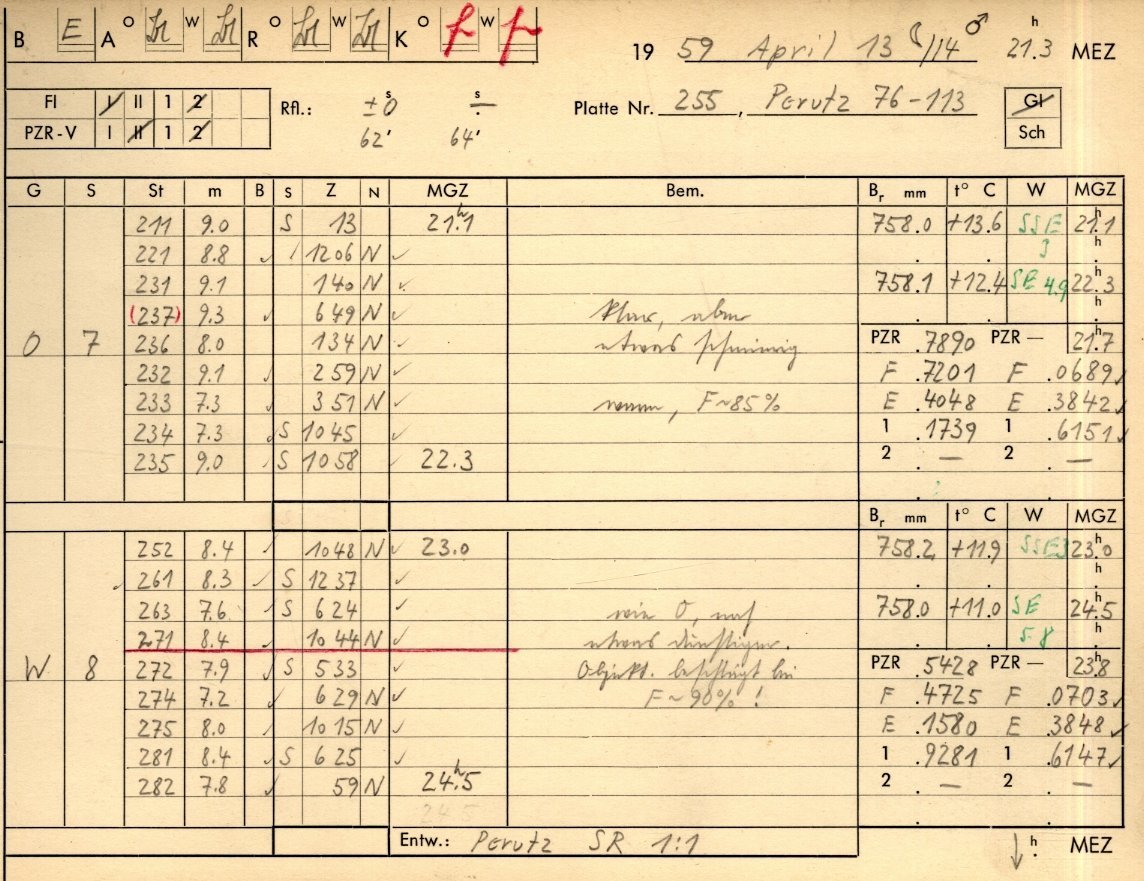 B E A O W R O W K O f W f
19 59 April 13 ☾/14 ♂ 21.3 h MEZ
FI I II 1 2 Rfl.: ±0 s s Platte Nr. 255, Perutz 76-113 Gl
PZR-V I II 1 2 62' 64' Sch
G S St m B S Z N MGZ Bem. Br mm t° C W MGZ
211 9.0 S 13 21.1 h 758.0 +13.6 SSE 21.1 h
221 8.8 ✓ 1206 N ✓ 3 h
231 9.1 140 N ✓ 758.1 +12.4 SE 4.9 22.3 h
(237) 9.3 ✓ 649 N ✓ klar, aber h
O 7 236 8.0 134 N ✓ etwas schwierig PZR .7890 PZR — 21.7 h
232 9.1 ✓ 259 N ✓ F .7201 F .0689 ✓
233 7.3 ✓ 351 N ✓ F~85% E .4048 E .3842 ✓
234 7.3 ✓ S 1045 ✓ 1 .1739 1 .6151 ✓
235 9.0 ✓ S 1058 ✓ 22.3 2 . — 2 . —
Br mm t° C W MGZ
252 8.4 ✓ 1048 N ✓ 23.0 758.2 +11.9 SSE 3 23.0 h
✓ 261 8.3 ✓ S 1237 ✓ h
263 7.6 ✓ S 624 ✓ wie O, noch 758.0 +11.0 SE 24.5 h
271 8.4 ✓ 1044 N ✓ etwas dunstiger. 5.8 h
W 8 272 7.9 ✓ S 533 ✓ Objekt. beschlägt bei PZR .5428 PZR — 23.8 h
274 7.2 ✓ 629 N ✓ F~90% ! F .4725 F .0703 ✓
275 8.0 ✓ 1015 N ✓ E .1580 E .3848 ✓
281 8.4 ✓ S 625 ✓ 1 .9281 1 .6147 ✓
282 7.8 ✓ 59 N 24.5 h 2 . — 2 . —
24.5
Entw.: Perutz SR 1:1 ↓ h MEZ